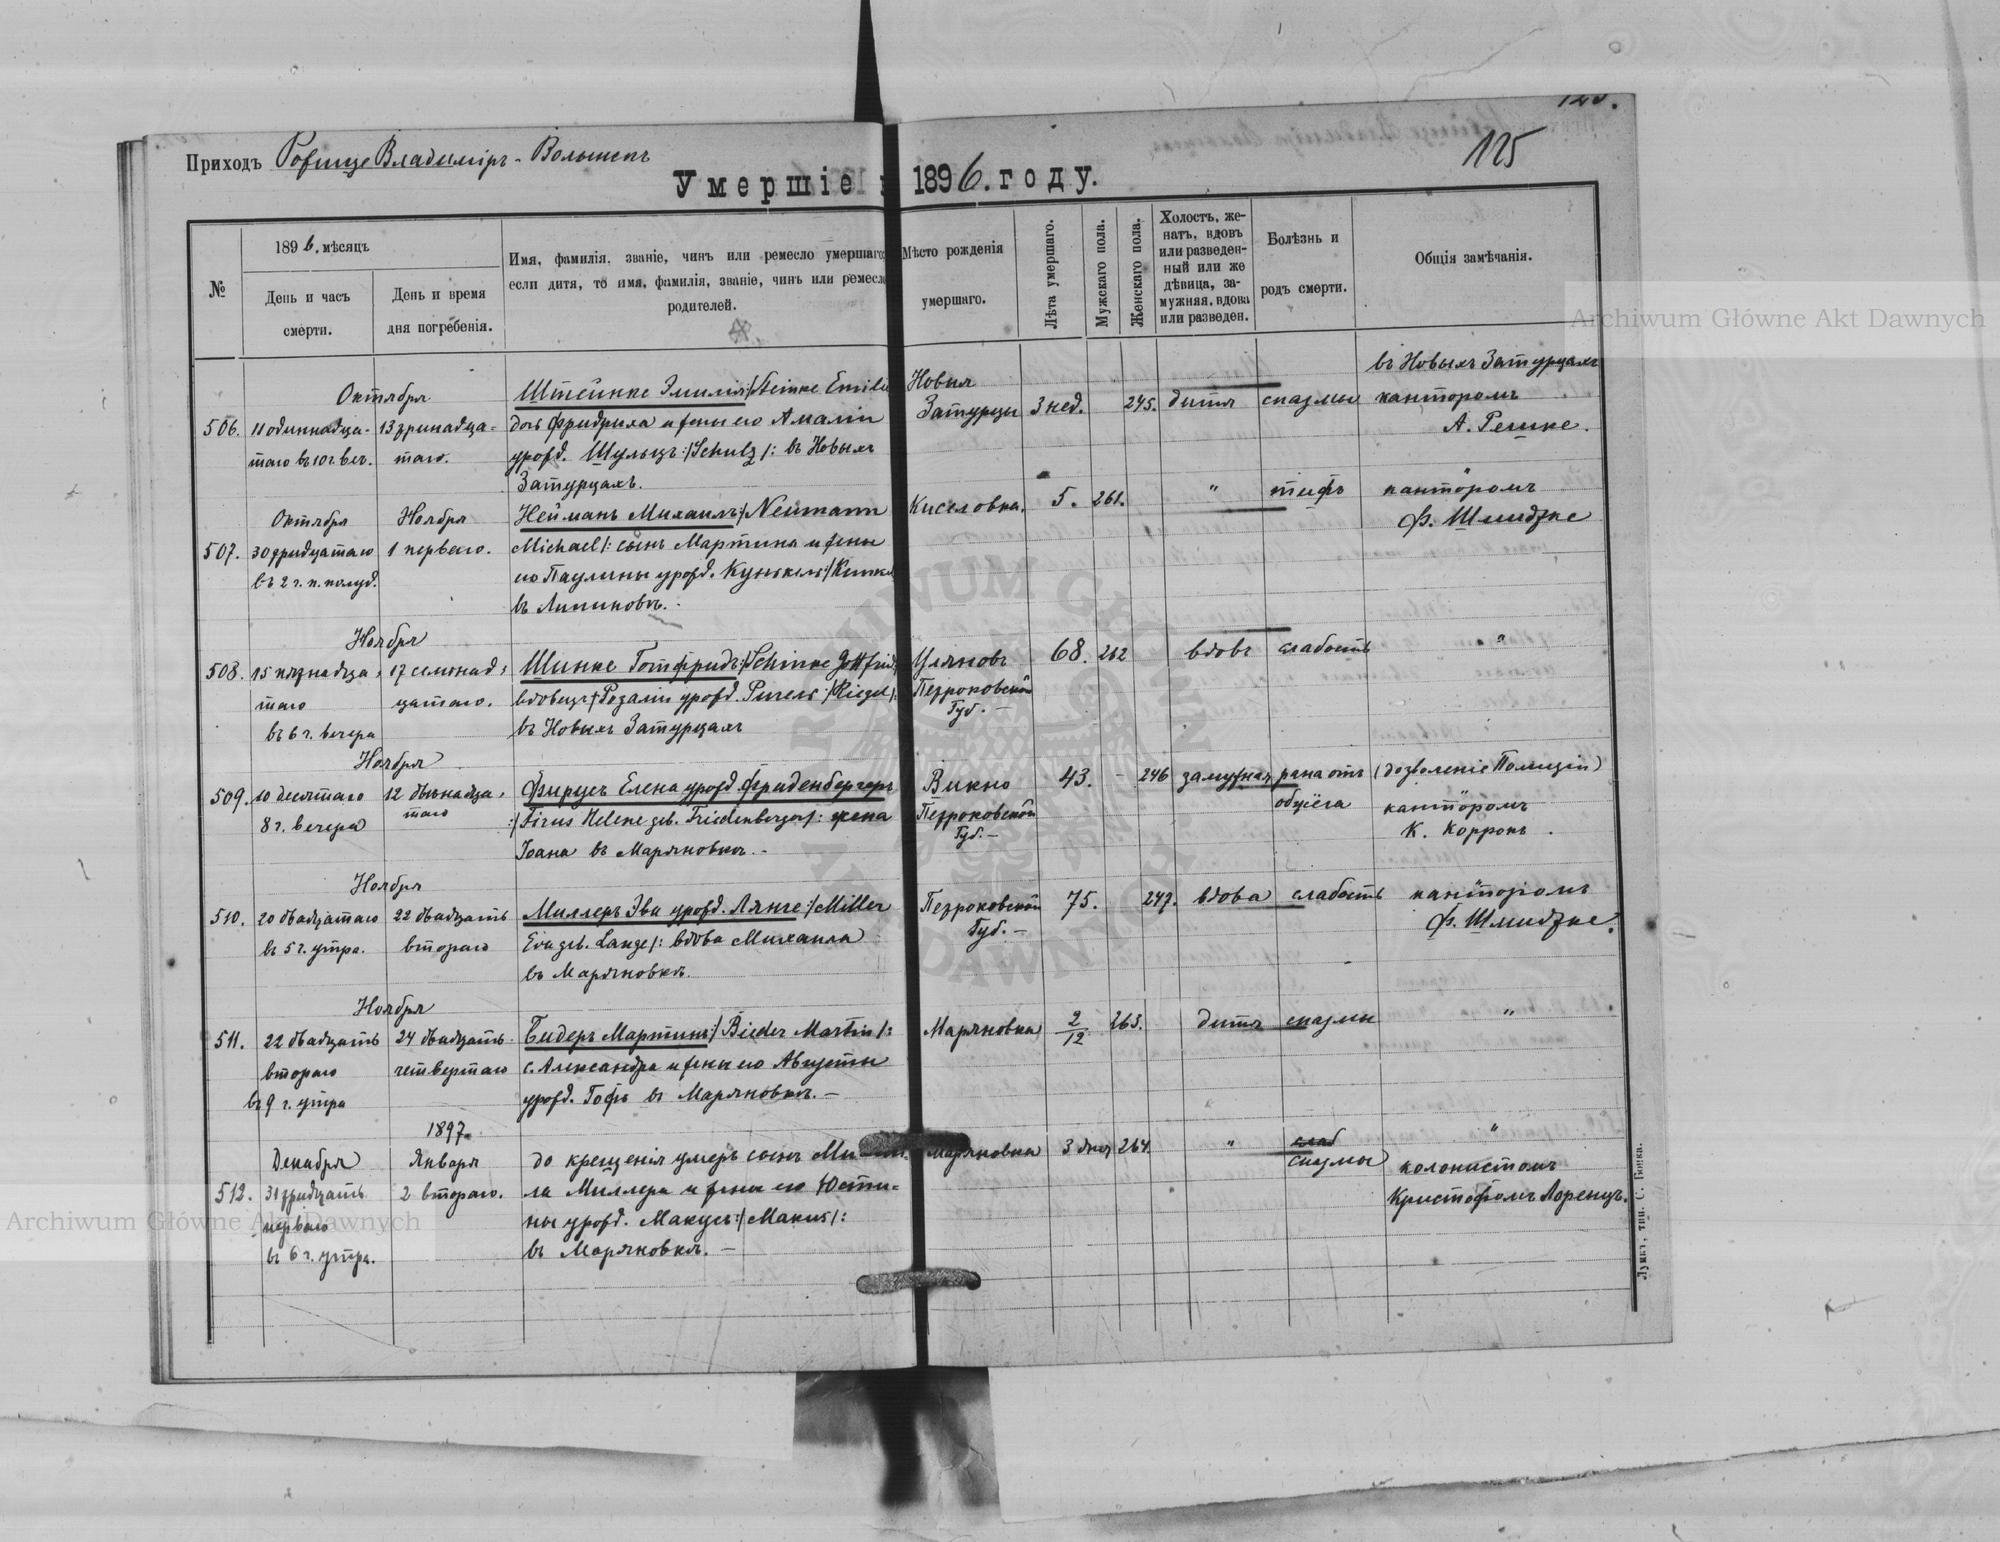 125.
125
Приходъ Рожище Владиміръ-Волынскъ
Умершіе въ 1896. году.
№
1896. мѣсяцъ
День и часъ смерти.
День и время дня погребенія.
Имя, фамилія, званіе, чинъ или ремесло умершаго,
если дитя, то имя, фамилія, званіе, чинъ или ремесло
родителей.
Мѣсто рожденія
умершаго.
Лѣта умершаго.
Мужскаго пола.
Женскаго пола.
Холостъ, же-
натъ, вдовъ
или разведен-
ный или же
дѣвица, за-
мужняя, вдова
или разведен.
Болѣзнь и
родъ смерти.
Общія замѣчанія.
Октября
506. 11 одиннадца- 13 тринадца-
таго въ 10 ч. веч. таго.
Штейнке Эмилія :/Steinke Emilie
дочь Фридриха и жены его Амаліи
урожд. Шульцъ :/Schulz/: въ Новыхъ
Затурцахъ.
Новыя
Затурцы
3 нед. 245. дитя спазмы
въ Новыхъ Затурцахъ
канторомъ
А. Решке.
Октября Ноября
507. 30 тридцатаго 1 перваго.
въ 2 ч. п. полуд.
Нейманъ Михаилъ :/Neumann
Michael/: сынъ Мартина и жены
его Паулины урожд. Кункель :/Kunkel
въ Липиновкѣ.
Киселовка. 5. 261. " тифъ
канторомъ
Ф. Шмидтке
Ноября
508. 15 пятнадца- 17 семнад-
таго цатаго.
въ 6 ч. вечера
Шинке Готфридъ :/Schinke Gottfried
вдовецъ Розаліи урожд. Ригель :/Riegel/:
въ Новыхъ Затурцахъ
Уляновъ
Петроковской
Губ. —
68. 262 вдовъ слабость "
Ноября
509. 10 десятаго 12 двѣнадца-
8 ч. вечера таго
Фирусъ Елена урожд. Фриденбергеръ
:/Firus Helene geb. Friedenberger/: жена
Іоана въ Маряновкѣ. -
Викно
Петроковской
Губ. —
43. - 246 замужняя рана отъ
обжёга
(дозволеніе Полиціи)
канторомъ
К. Корронъ.
Ноября
510. 20 двадцатаго 22 двадцать
въ 5 ч. утра. втораго
Миллеръ Эва урожд. Лянге :/Miller
Eva geb. Lange/: вдова Михаила
въ Маряновкѣ.
Петроковской
Губ. —
75. 247. вдова слабость
канторомъ
Ф. Шмидтке.
Ноября
511. 22 двадцать 24 двадцать
втораго четвертаго
въ 9 ч. утра
Бидеръ Мартинъ :/Bieder Martin/:
с. Александра и жены его Августы
урожд. Гофъ въ Маряновкѣ. —
Маряновка 2/12 263. дитя спазмы "
1897.
Декабря Января
512. 31 тридцать 2 втораго.
перваго
въ 6 ч. утра.
до крещенія умеръ сынъ Михаи-
ла Миллера и жены его Юсти-
ны урожд. Макусъ :/Makus/:
въ Маряновкѣ. —
Маряновка 3 дня 264. " слаб
спазмы
"
колонистомъ
Кристофомъ Лоренцъ.
Луцкъ, тип. С. Бонка.
Archiwum Główne Akt Dawnych
Archiwum Główne Akt Dawnych
ARCHIWUM GŁÓWNE AKT DAWNYCH